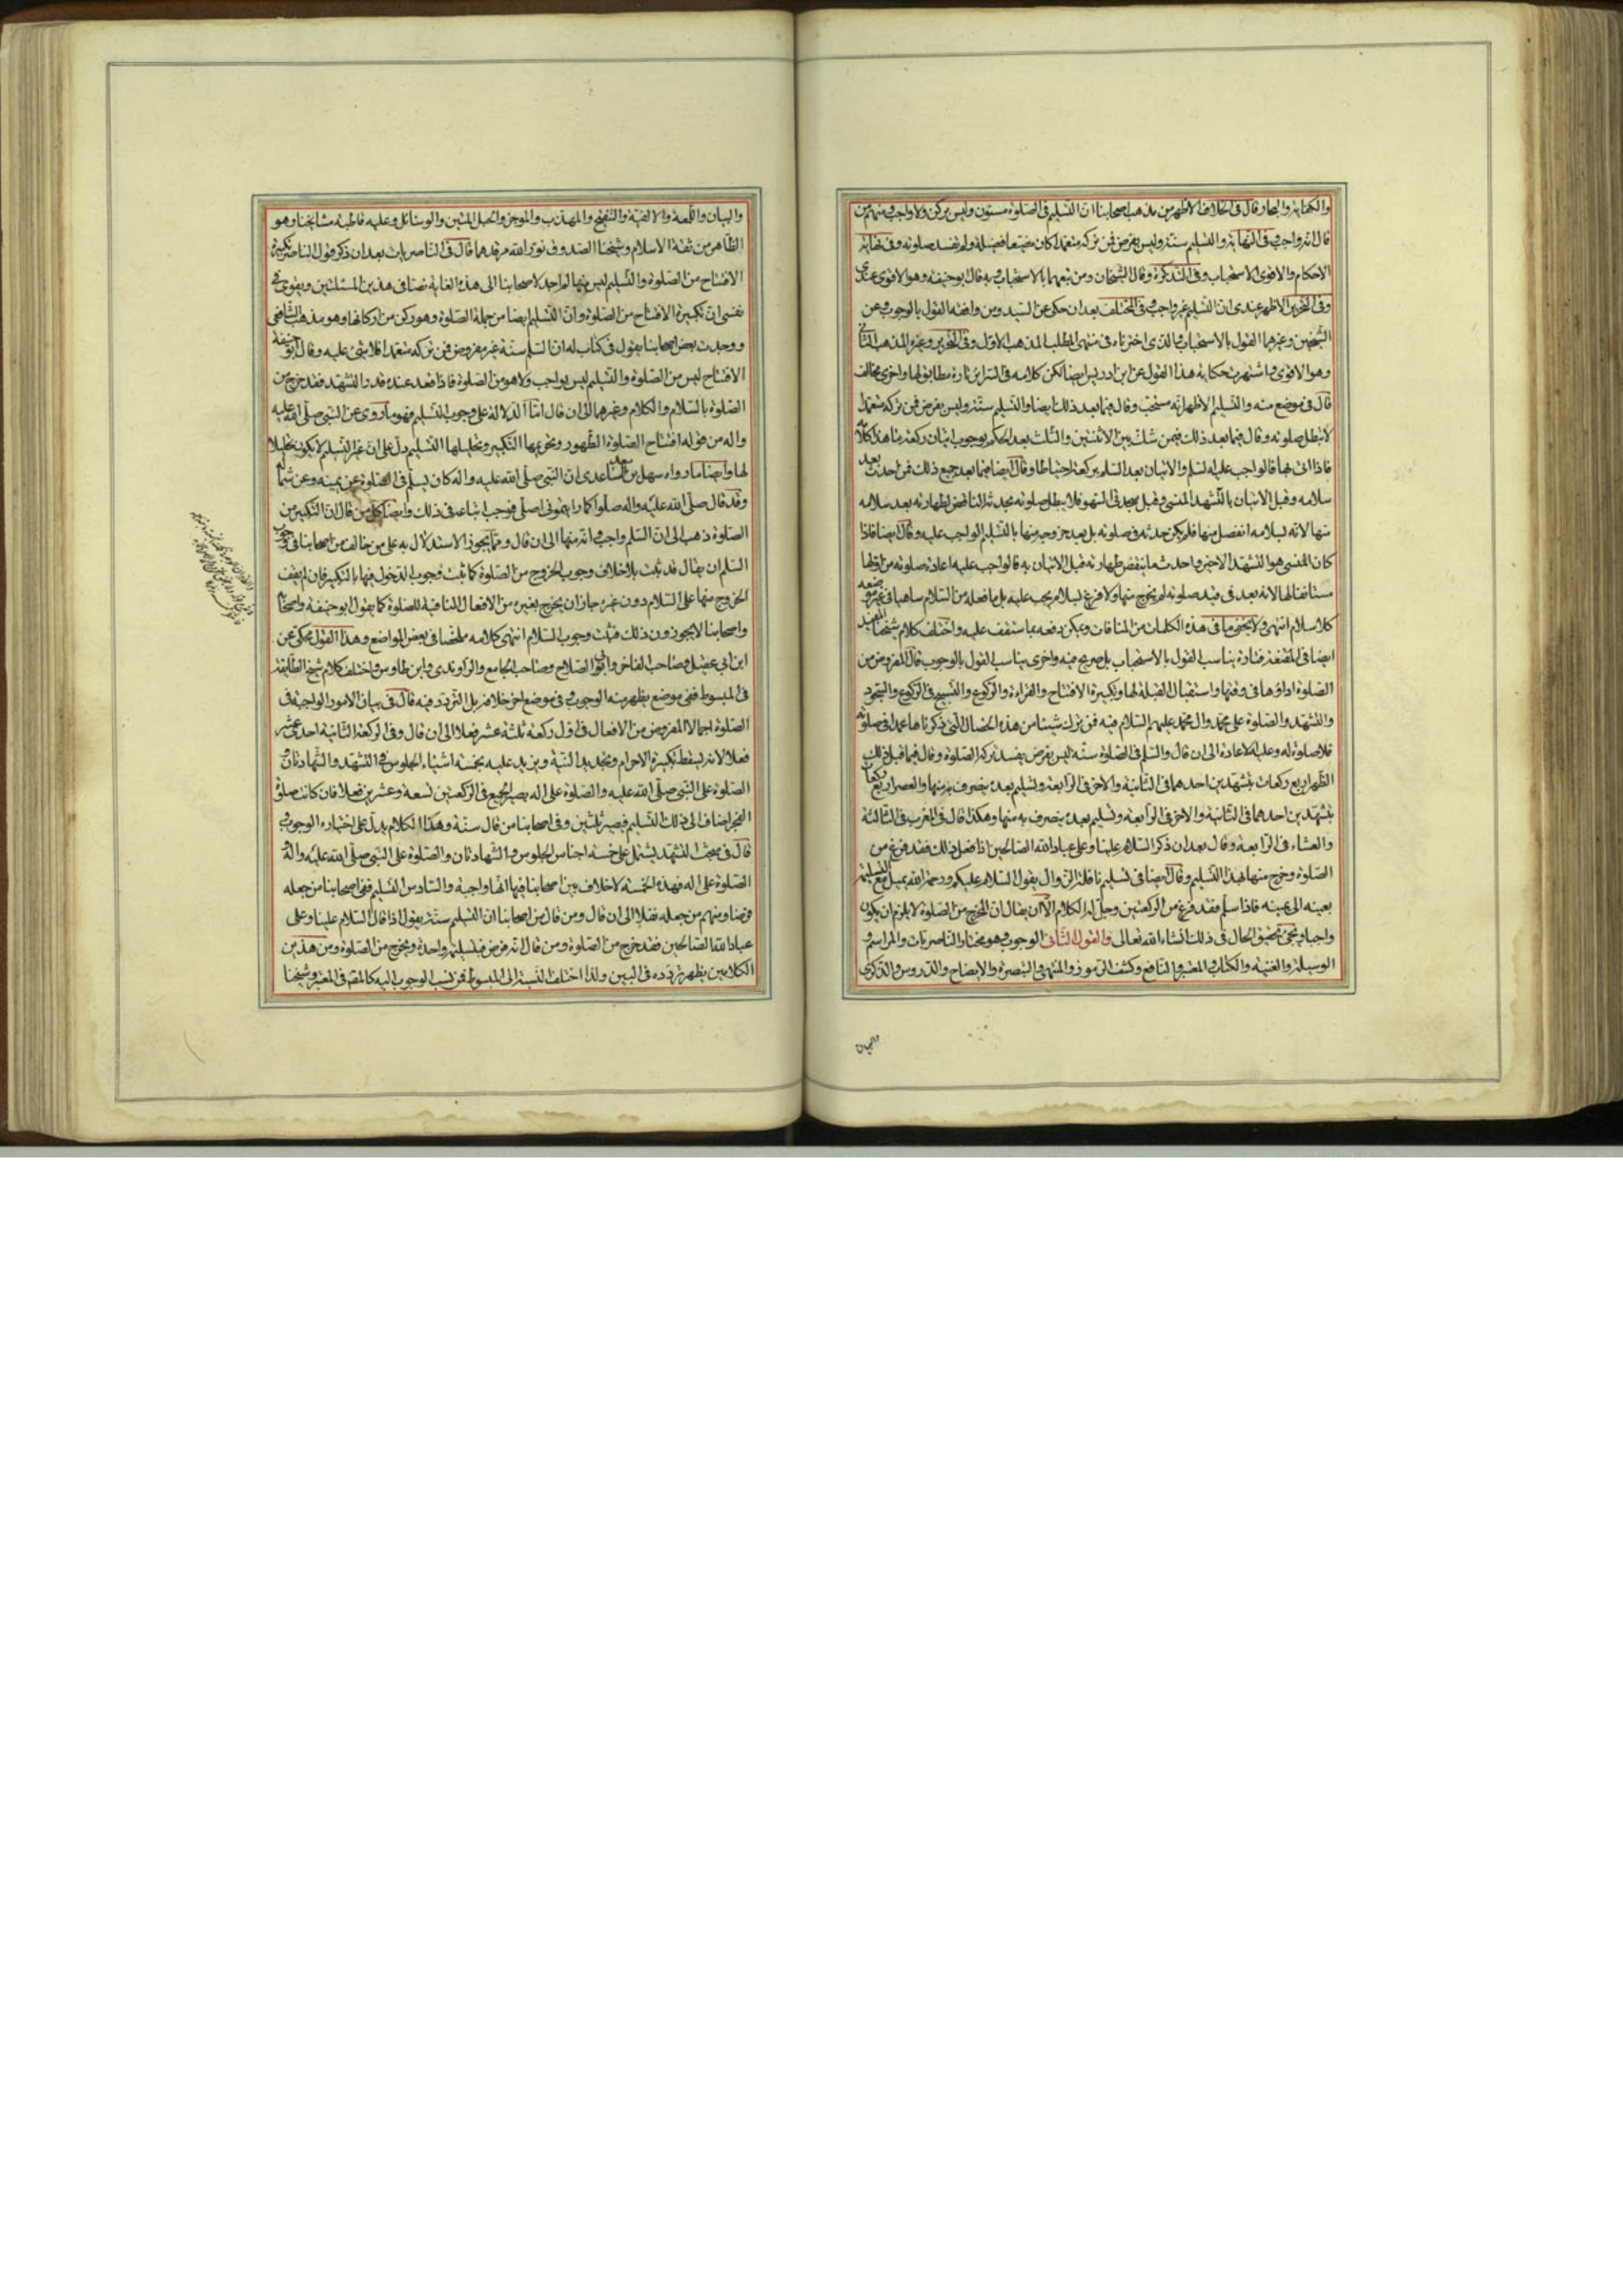 والكفاية والبحار قال في الخلاف الاظهر من مذهب اصحابنا ان التسليم في الصلوة مسنون وليس بركن ولا واجب ومنهم من
قال انه واجب وفي النهاية والتسليم سنة وليس بفرض فمن تركه متعمدا كان مضيعا فضيلة ولم تفسد صلوته وفي نهاية
الاحكام والاقوى الاستحباب وفي التذكرة وقال الشيخان ومن تبعهما بالاستحباب وبه قال ابوحنيفة وهو الاقوى عندي
وفي التحرير الاظهر عندي ان التسليم غير واجب وفي المختلف بعد ان حكى عن السيد ومن وافقه القول بالوجوب وعن
الشيخين وغيرهما القول بالاستحباب والذي اخترناه في منتهى المطلب المذهب الاول وفي التحرير وغيره المذهب الثاني
وهو الاقوى واشتهرت حكاية هذا القول عن ابن ادريس ايضا لكن كلامه في السرائر تارة مطابق لها واخرى مخالف
قال في موضع منه والتسليم الاظهر انه مستحب وقال فيما بعد ذلك ايضا والتسليم سنة وليس بفرض فمن تركه متعمدا
لا تبطل صلوته وقال فيما بعد ذلك فيمن شك بين الاثنتين والثلث بعد الحكم بوجوب اتيان ركعة ما هذا كلامه
فاذا اتى بها فالواجب عليه التسلم والاتيان بعد التسلم بركعة احتياطا وقال ايضا فيما بعد جميع ذلك فمن احدث بعد
سلامه وقبل الاتيان بالتشهد المنسي وقبل سجدتي السهو فلا يبطل صلوته بحدثه الناقض لطهارته بعد سلامه
منها لانه بسلامه انفصل منها فلم يكن حدثه في صلوته بل بعد خروجه منها بالتسليم الواجب عليه وقال ايضا فاذا
كان المنسي هو التشهد الاخير واحدث ما ينقض طهارته قبل الاتيان به فالواجب عليه اعادة صلوته من اولها
مستانفا لها لانه بعد في قيد صلوته لم يخرج منها ولا فرغ بسلام يجب عليه بل ما فعله من السلام ساهيا في غير موضعه
كلا سلام انتهى ولا يخفى ما في هذه الكلمات من المنافات ويمكن دفعه بما ستقف عليه واختلف كلام شيخنا المفيد
ايضا في المقنعة فتارة يناسب القول بالاستحباب بل صريح فيه واخرى يناسب القول بالوجوب قال المفروض من
الصلوة اداؤها في وقتها واستقبال القبلة لها وتكبيرة الافتتاح والقراءة والركوع والتسبيح في الركوع والسجود
والتشهد والصلوة على محمد وال محمد عليهم السلام فيه فمن ترك شيئا من هذه الخصال التي ذكرناها عمدا في صلوته
فلا صلوة له وعليه الاعادة الى ان قال والسلم في الصلوة سنة ليس بفرض يفسد بتركه الصلوة وقال فيما قبل ذلك
الظهر اربع ركعات بتشهدين احدهما في الثانية والاخر في الرابعة وتسليم بعده ينصرف به منها والعصر اربع ركعات
بتشهدين احدهما في الثانية والاخر في الرابعة وتسليم بعده ينصرف به منها وهكذا قال في المغرب في الثالثة
والعشاء في الرابعة وقال بعد ان ذكر السلام علينا وعلى عباد الله الصالحين اذا فعل ذلك فقد فرغ من
الصلوة وخرج منها بهذا التسليم وقال ايضا في تسليم نافلة الزوال يقول السلام عليكم ورحمة الله يميل مع التسليمة
بعينه الى يمينه فاذا سلم فقد فرغ من الركعتين وحل له الكلام الا ان يقال ان المخرج من الصلوة لا يلزم ان يكون
واجبا ويجيء تحقيق الحال في ذلك انشاء الله تعالى والقول الثاني الوجوب وهو مختار الناصريات والمراسم و
الوسيلة والغنية والكتاب والمعتبر والنافع وكشف الرموز والمنتهى والتبصرة والايضاح والدروس والذكرى
والبيان
والبيان واللمعة والالفية والتنقيح والمهذب والموجز والحبل المتين والوسائل وعليه قاطبة مشايخنا وهو
الظاهر من ثقة الاسلام وشيخنا الصدوق نور الله مرقدهما قال في الناصريات بعد ان ذكر قول الناصر تكبيرة
الافتتاح من الصلوة والتسليم ليس منها لم اجد لاصحابنا الى هذه الغاية نصا في هذين المسئلتين ويقوى في
نفسي ان تكبيرة الافتتاح من الصلوة وان التسليم ايضا من جملة الصلوة وهو ركن من اركانها وهو مذهب الشافعي
ووجدت بعض اصحابنا يقول في كتاب له ان السلم سنة غير مفروض فمن تركه متعمدا فلا شيء عليه وقال ابو حنيفة
الافتتاح ليس من الصلوة والتسليم ليس بواجب ولا هو من الصلوة فاذا قعد عنده قدر التشهد فقد خرج من
الصلوة بالسلام والكلام وغيرهما الى ان قال امّا الدلالة على وجوب التسليم فهو ما روى عن النبي صلى الله عليه
واله من قوله افتتاح الصلوة الطهور وتحريمها التكبير وتحليلها التسليم دل على ان غير التسليم لا يكون تحليلا
لها وايضا ما رواه سهل بن سعد الساعدي ان النبي صلى الله عليه واله كان يسلم في الصلوة عن يمينه وعن شماله
وقد قال صلى الله عليه واله صلوا كما رايتموني اصلي فوجب اتباعه في ذلك وايضا كل من قال ان التكبير من
الصلوة ذهب الى ان السلم واجب وانه منها الى ان قال ومما يجوز الاستدلال به على من خالف من اصحابنا في وجوب
السلم ان يقال قد ثبت بلا خلاف وجوب الخروج من الصلوة كما ثبت وجوب الدخول فيها بالتكبير فان لم يقف
الخروج منها على السلام دون غيره جاز ان يخرج بغيره من الافعال المنافية للصلوة كما يقول ابو حنيفة واصحابه
واصحابنا لا يجوزون ذلك فثبت وجوب السلام انتهى كلامه ملخصا في بعض المواضع وهذا القول محكي عن
ابن ابي عقيل وصاحب الفاخر وابي الصلاح وصاحب الجامع والراوندي وابن طاوس واختلف كلام شيخ الطايفة
في المبسوط ففي موضع يظهر منه الوجوب وفي موضع اخر خلافه بل التردد فيه قال في بيان الامور الواجبة في
الصلوة اجمالا المفروض من الافعال في اول ركعة ثلثة عشر فعلا الى ان قال وفي الركعة الثانية احد عشر
فعلا لانه يسقط تكبيرة الاحرام وتجديد النية ويزيد عليه بخمسة اشياء الجلوس في التشهد والشهادتان و
الصلوة على النبي صلى الله عليه والصلوة على اله يصير الجميع في الركعتين تسعة وعشرين فعلا فان كانت صلوة
الفجر اضاف الى ذلك التسليم فيصير ثلثين وفي اصحابنا من قال سنة وهذا الكلام يدل على اختياره الوجوب و
قال في مبحث التشهد يشتمل على خمسة اجناس الجلوس والشهادتان والصلوة على النبي صلى الله عليه واله و
الصلوة على اله فهذه الخمسة لا خلاف بين اصحابنا فيها انها واجبة والسادس التسليم ففي اصحابنا من جعله
فرضا ومنهم من جعله نفلا الى ان قال ومن قال من اصحابنا ان التسليم سنة يقول اذا قال السلام علينا وعلى
عباد الله الصالحين فقد خرج من الصلوة ومن قال انه فرض فبتسليمة واحدة ويخرج من الصلوة ومن هذين
الكلامين يظهر تردده في البين ولذا اختلف النسبة الى المبسوط فمن نسب الوجوب اليه كالمحقق في المعتبر وشيخنا